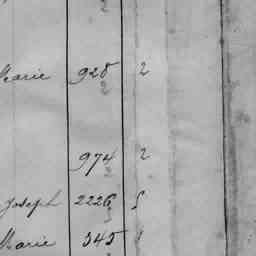 2
Marie 928 2
2
974 2
2
Joseph 2226
Marie 545